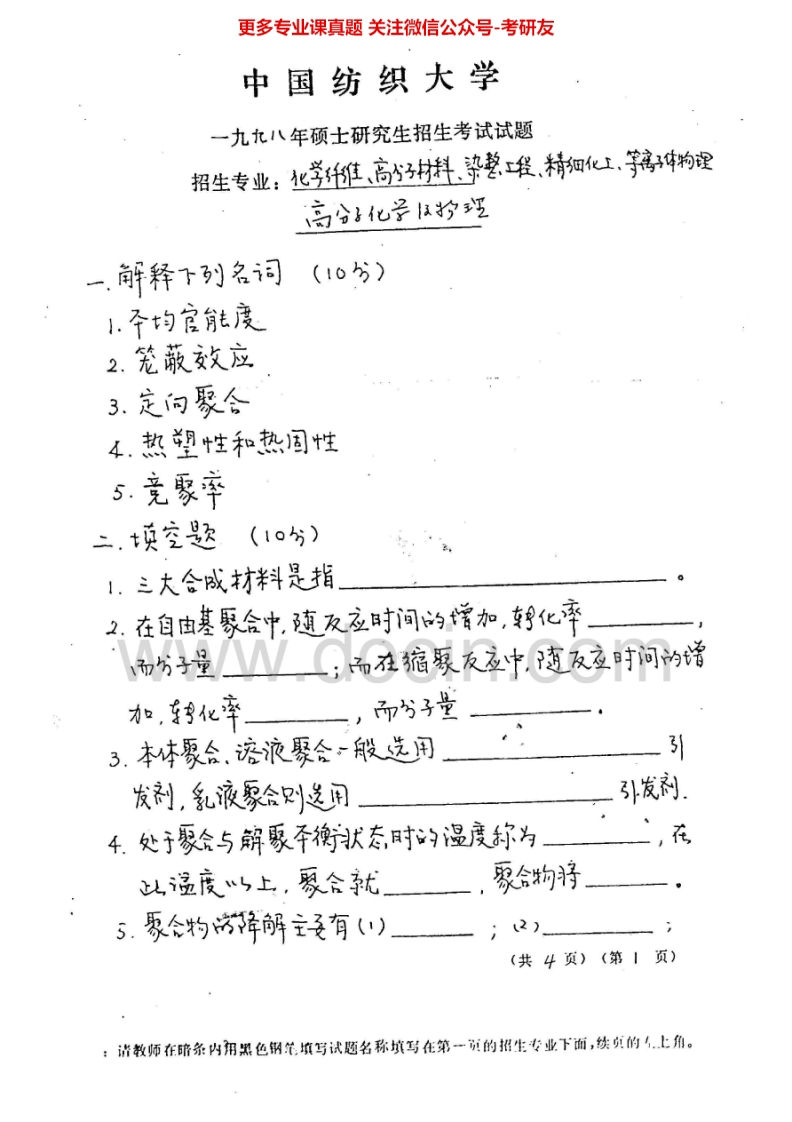 更多专业课真题 关注微信公众号-考研友
中国纺织大学
一九九八年硕士研究生招生考试试题
招生专业：化学纤维、高分子材料、染整工程、精细化工、等离子体物理
高分子化学及物理
一.解释下列名词 (10分)
1.平均官能度
2.笼蔽效应
3.定向聚合
4.热塑性和热固性
5.竞聚率
二.填空题 (10分)
1.三大合成材料是指________。
2.在自由基聚合中,随反应时间的增加,转化率________,
而分子量________;而在缩聚反应中,随反应时间的增
加,转化率________,而分子量________.
www.docin.com
3.本体聚合、溶液聚合一般选用________引
发剂,乳液聚合则选用________引发剂.
4.处于聚合与解聚平衡状态时的温度称为________,在
此温度以上,聚合就________,聚合物将________。
5.聚合物的降解主要有(1)________;(2)________;
(共 4 页) (第 1 页)
：请教师在暗条内用黑色钢笔填写试题名称填写在第一页的招生专业下面,续页的左上角。